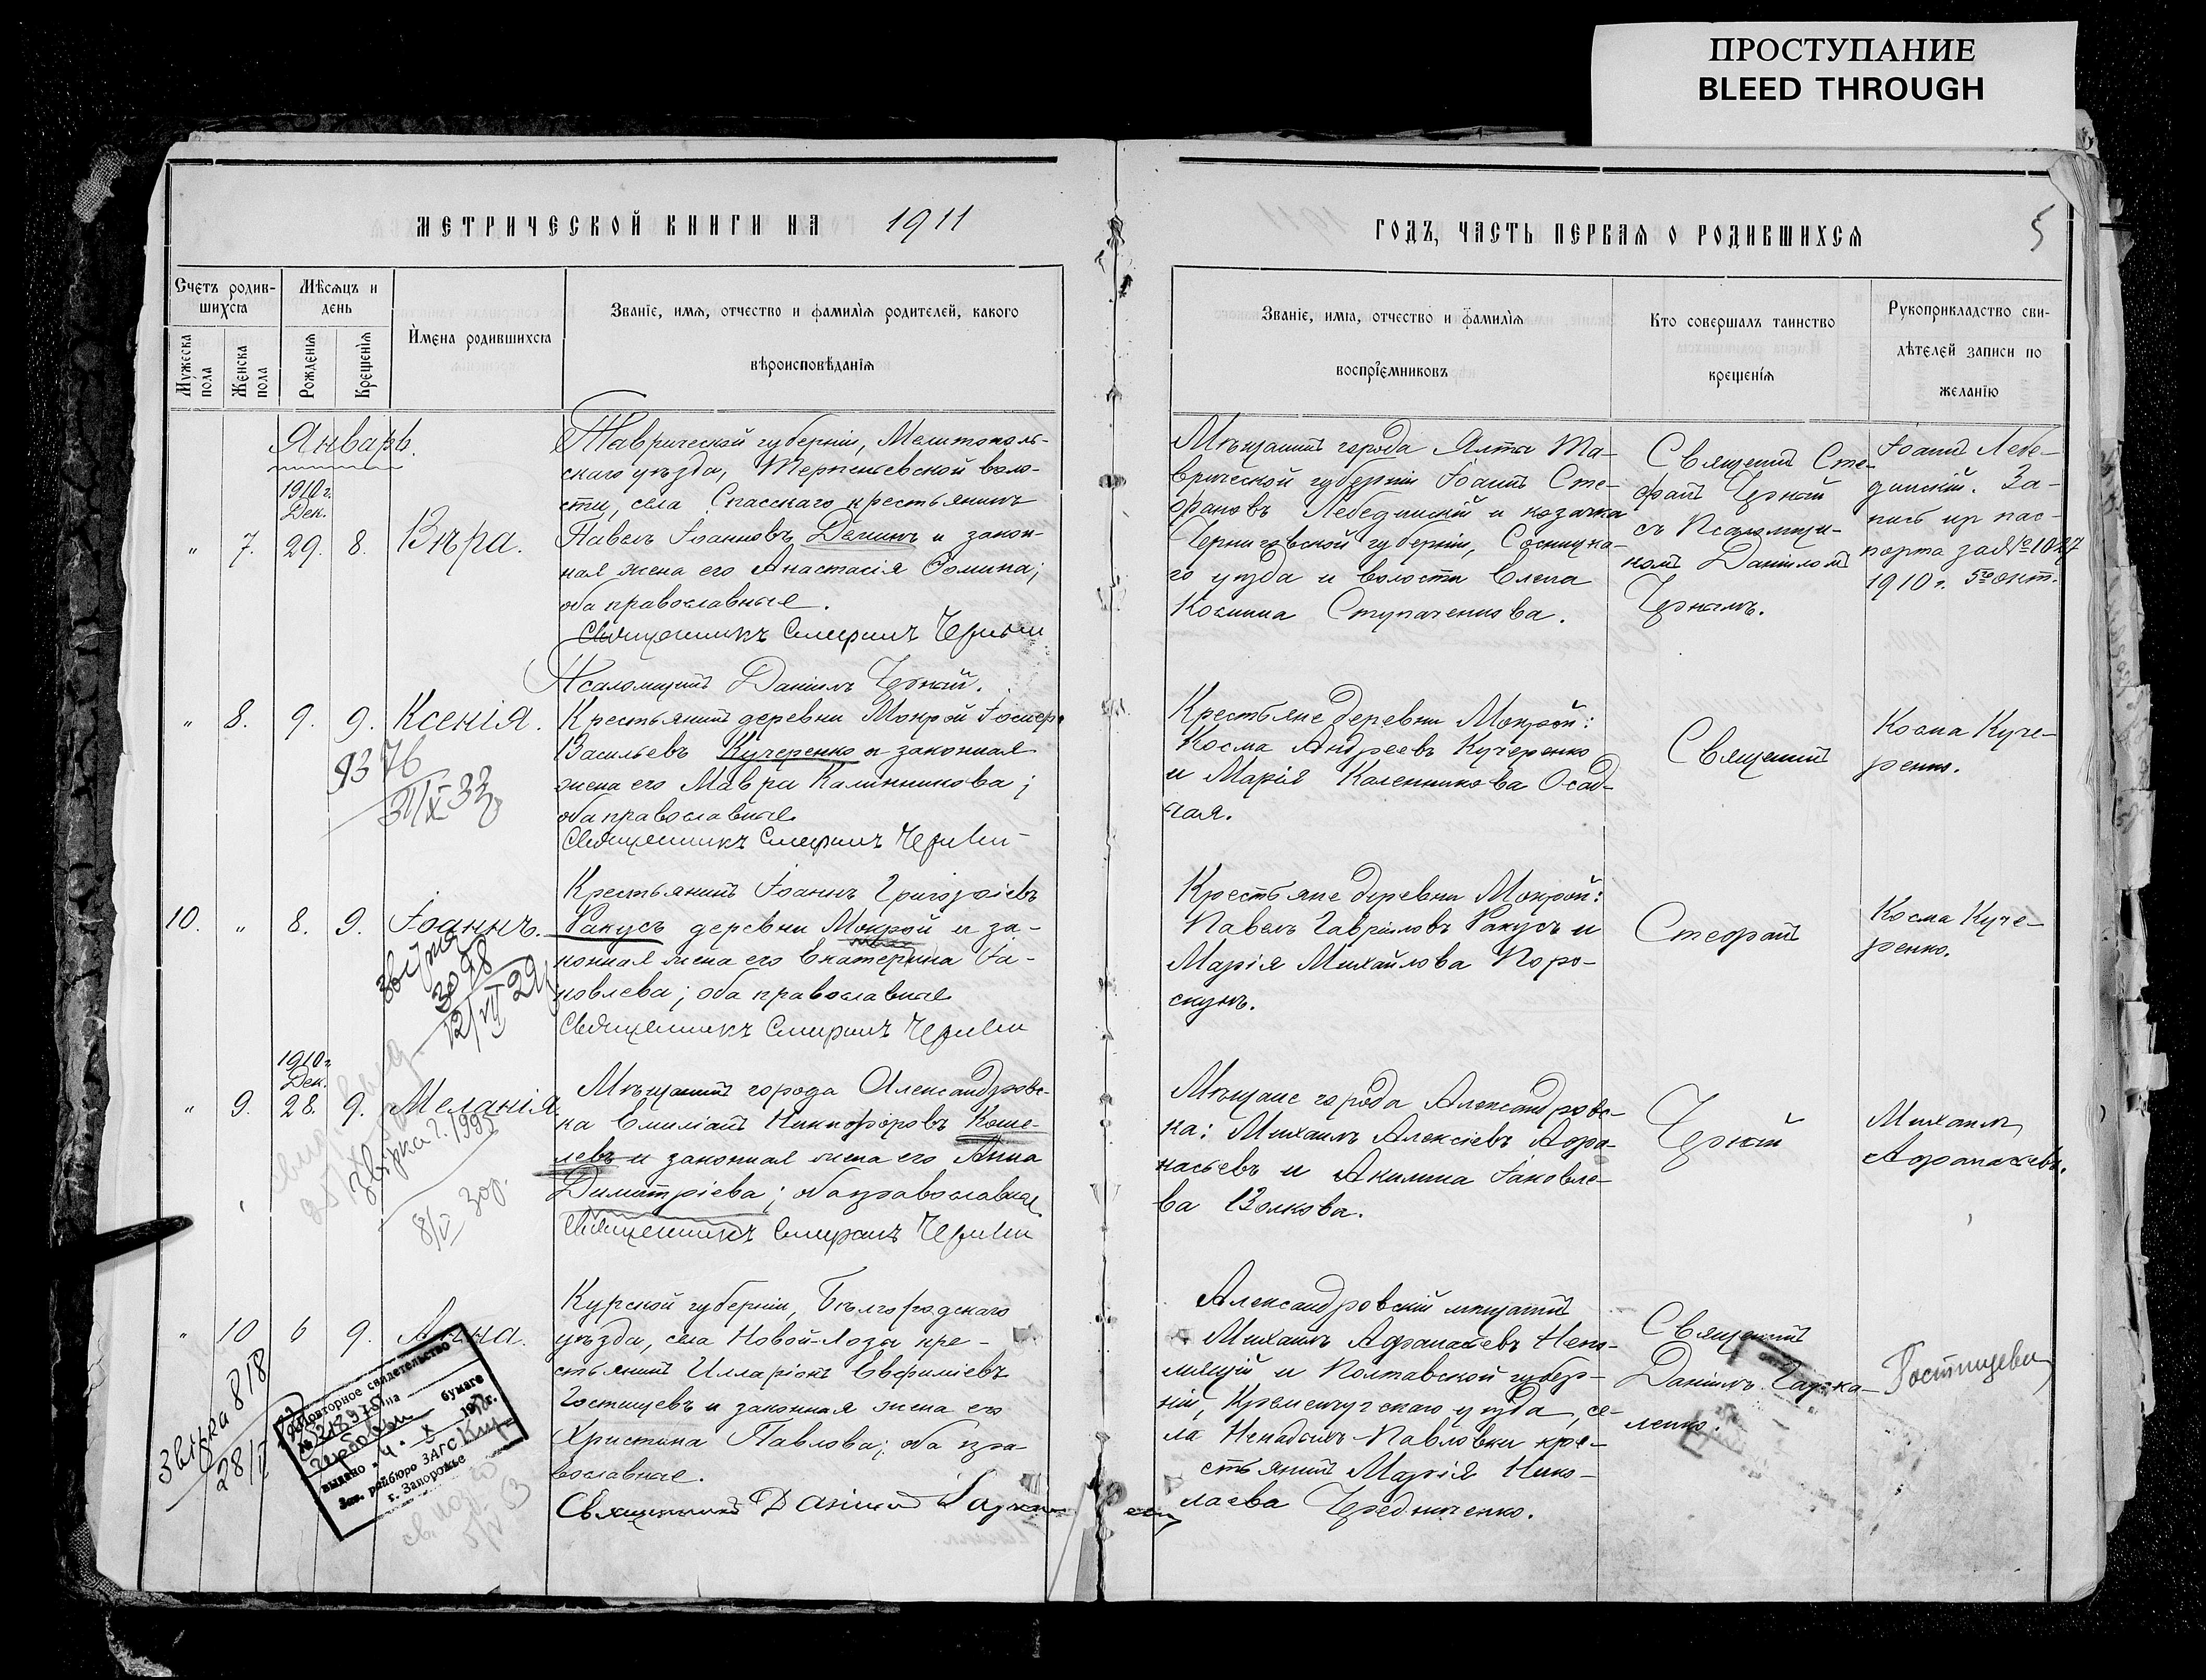 ПРОСТУПАНИЕ
BLEED THROUGH
МЕТРИЧЕСКОЙ КНИГИ НА 1911
ГОДЪ, ЧАСТЬ ПЕРВАЯ О РОДИВШИХСЯ
5
Счетъ родив-
шихся
Мужеска пола
Женска пола
Мѣсяцъ и
день
Рожденія
Крещенія
Имена родившихся
Званіе, имя, отчество и фамилія родителей, какого
вѣроисповѣданія
Званіе, имя, отчество и фамилія
воспріемниковъ
Кто совершалъ таинство
крещенія
Рукоприкладство сви-
дѣтелей записи по
желанію
Январь.
1910 г.
Дек.
" 7. 29. 8. Вѣра.
Таврической губерніи, Мелитополь-
скаго уѣзда, Терпеньевской воло-
сти, села Спасскаго крестьянинъ
Павелъ Іоанновъ Деминъ и закон-
ная жена его Анастасія Ѳомина;
оба православные.
Священникъ Стефанъ Черный
Псаломщикъ Даніилъ Черный.
Мѣщанинъ города Ялты Та-
врической губерніи Іоаннъ Сте-
фановъ Лебединскій и козачка
Черниговской губерніи, Сосницка-
го уѣзда и волости Елена
Космина Ступаченкова.
Священникъ Сте-
фанъ Черный
съ Псаломщи-
комъ Даніиломъ
Чернымъ.
Іоаннъ Лебе-
динскій. За-
пись пр пас-
порта за № 1027
1910 г. 5го окт.
" 8. 9. 9. Ксенія.
9376
31/X 33
Крестьянинъ деревни Мокрой Іосиф.
Васильевъ Кучеренко и законная
жена его Мавра Калинникова;
оба православные
Священникъ Стефанъ Черный
Крестьяне деревни Мокрой:
Косма Андреевъ Кучеренко
и Марія Каленникова Осад-
чая.
Священникъ
Косма Куче-
ренко.
10. " 8. 9. Іоаннъ.
3098
12/VII 29
Крестьянинъ Іоаннъ Григоріевъ
Ракусъ деревни Мокрой и за-
конная жена его Екатерина Іа-
ковлева; оба православные
Священникъ Стефанъ Черный
Крестьяне деревни Мокрой:
Павелъ Гавріиловъ Ракусъ и
Марія Михайлова Поро-
скунъ.
Стефанъ
Косма Куче-
ренко.
1910 г.
Дек.
" 9. 28. 9. Меланія
звірка 2.1995
8/V 30р.
Мѣщанинъ города Александровс-
ка Емиліанъ Никифоровъ Коше-
левъ и законная жена его Анна
Димитріева; оба православные
Священникъ Стефанъ Черный
Мѣщане города Александровс-
ка: Михаилъ Алексіевъ Афа-
насьевъ и Акилина Іаковле-
ва Волкова.
Черный
Михаилъ
Афанасьевъ.
" 10 6 9. Анна.
звірка 818
Повторное свидетельство
на гербовой бумаге
выдано
Зав. райбюро ЗАГС
г. Запорожье
Курской губерніи, Бѣлгородскаго
уѣзда, села Новой-Лозы кре-
стьянинъ Илларіонъ Евфиміевъ
Гостищевъ и законная жена его
Христина Павлова; оба пра-
вославные.
Священникъ Даніилъ
Александровскій мѣщанинъ
Михаилъ Афанасіевъ Непо-
мнящій и Полтавской губер-
ніи, Кременчугскаго уѣзда, се-
ла Павловки кре-
стьянинъ Марія Нико-
лаева Чередниченко.
Священникъ
Даніилъ
Гостищева